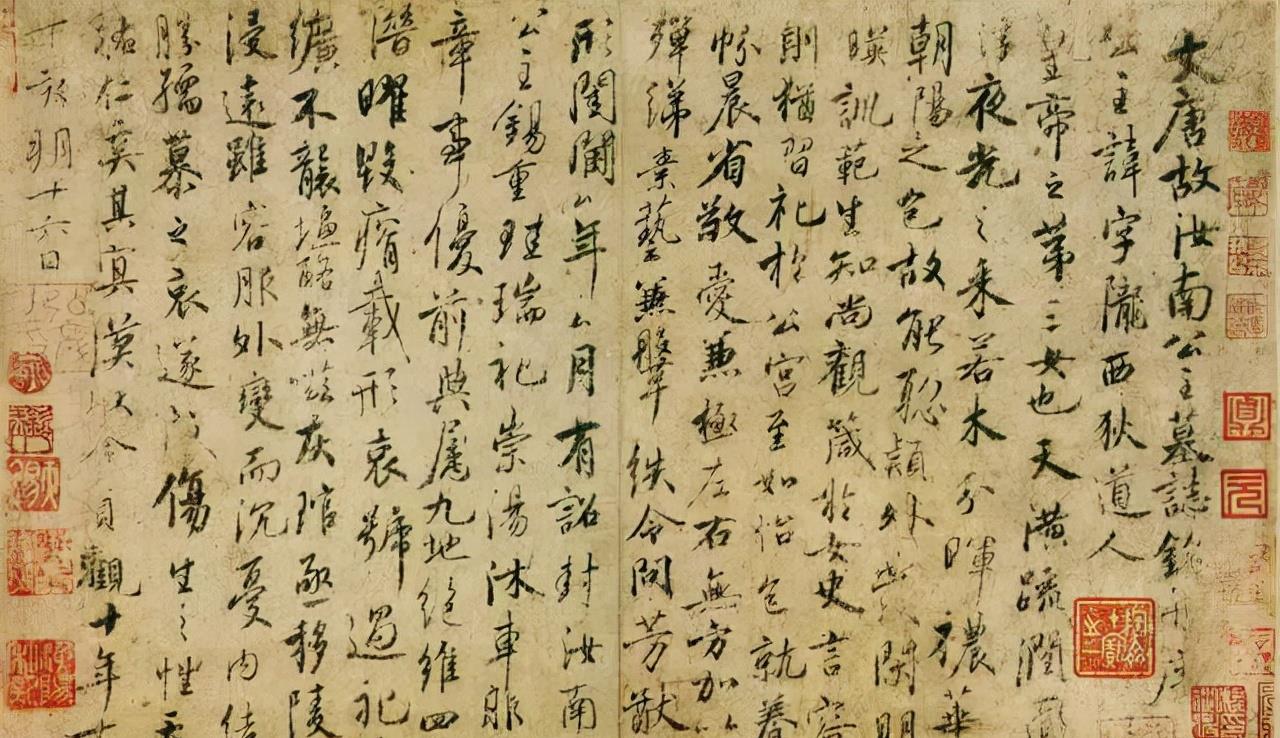 大唐故汝南公主墓誌銘并序
公主諱字隴西狄道人
皇帝之第三女也天潢疏潤
浮夜光之采若木分暉穠華
朝陽之色故能聰穎外發閑明
暎訓範生知尚觀箴於女史言容
則猶習礼於公宮至如怡色就養
帉晨省敬愛兼極左右無方加以
殫綈素藝兼鞶紩令問芳猷
形閨閫厶年厶月有詔封汝南
公主錫重珪瑞礼崇湯沐車服
章事優前典屬九地絕維四
潛曜毀瘠載形哀號過礼
纊不襲塩酪無嗞灰琯亟移陵
浸遠雖容服外變而沉憂內結
勝孺慕之哀遂成傷生之性天
祐仁奚其冥漠以今貞觀十年十
丁亥朔十六日